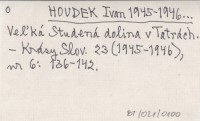 O HOUDEK Ivan 1945-1946...
Veľká Studená dolina v Tatrách.
– Krásy Slov. 23 (1945-1946),
nr 6: 136-142.
BT/021/0100